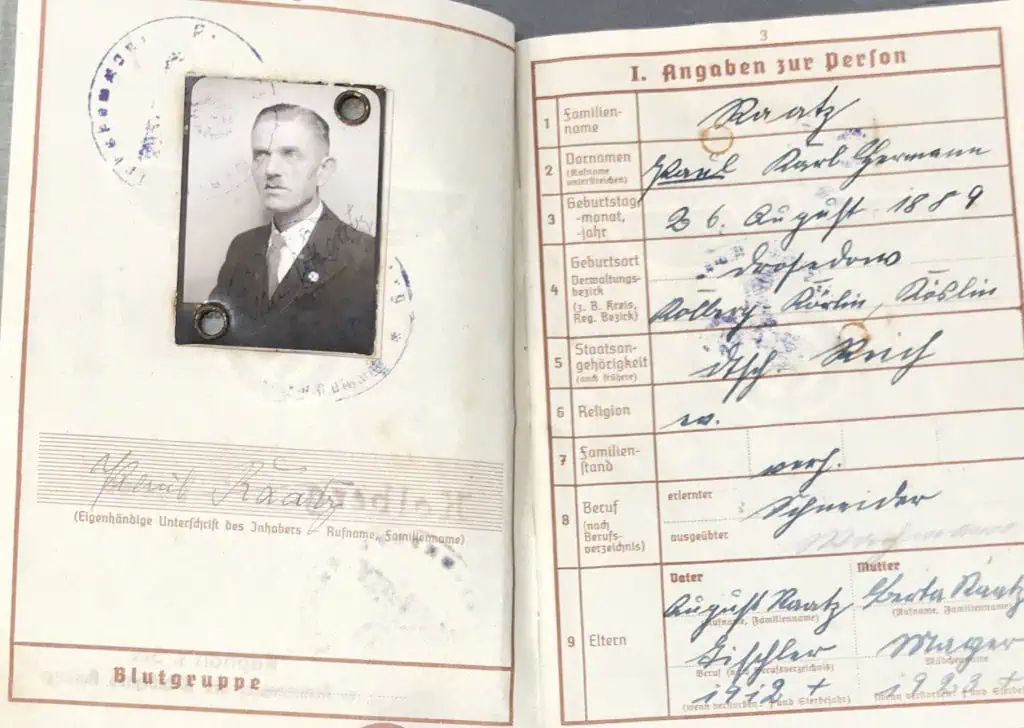 Paul Raatz
(Eigenhändige Unterschrift des Inhabers Rufname, Familienname)
Blutgruppe
3
I. Angaben zur Person
1 Familien-
name
Raatz
2 Vornamen
(Rufname
unterstreichen)
Paul Karl Hermann
3 Geburtstag,
-monat,
-jahr
26. August 1889
4 Geburtsort
Verwaltungs-
bezirk
(z. B. Kreis,
Reg. Bezirk)
Drosedow
Kolberg-Körlin, Köslin
5 Staatsan-
gehörigkeit
(auch frühere)
dtsch. Reich
6 Religion
ev.
7 Familien-
stand
verh.
8 Beruf
(nach
Berufs-
verzeichnis)
erlernter
Schneider
ausgeübter
9 Eltern
Vater
August Raatz
(Rufname, Familienname)
Tischler
Beruf (nach Berufsverzeichnis)
1912 +
(wenn verstorben: + und Sterbejahr)
Mutter
Berta Raatz
(Rufname, Familienname)
Mager
Mädchenname
1923 +
(wenn verstorben: + und Sterbejahr)